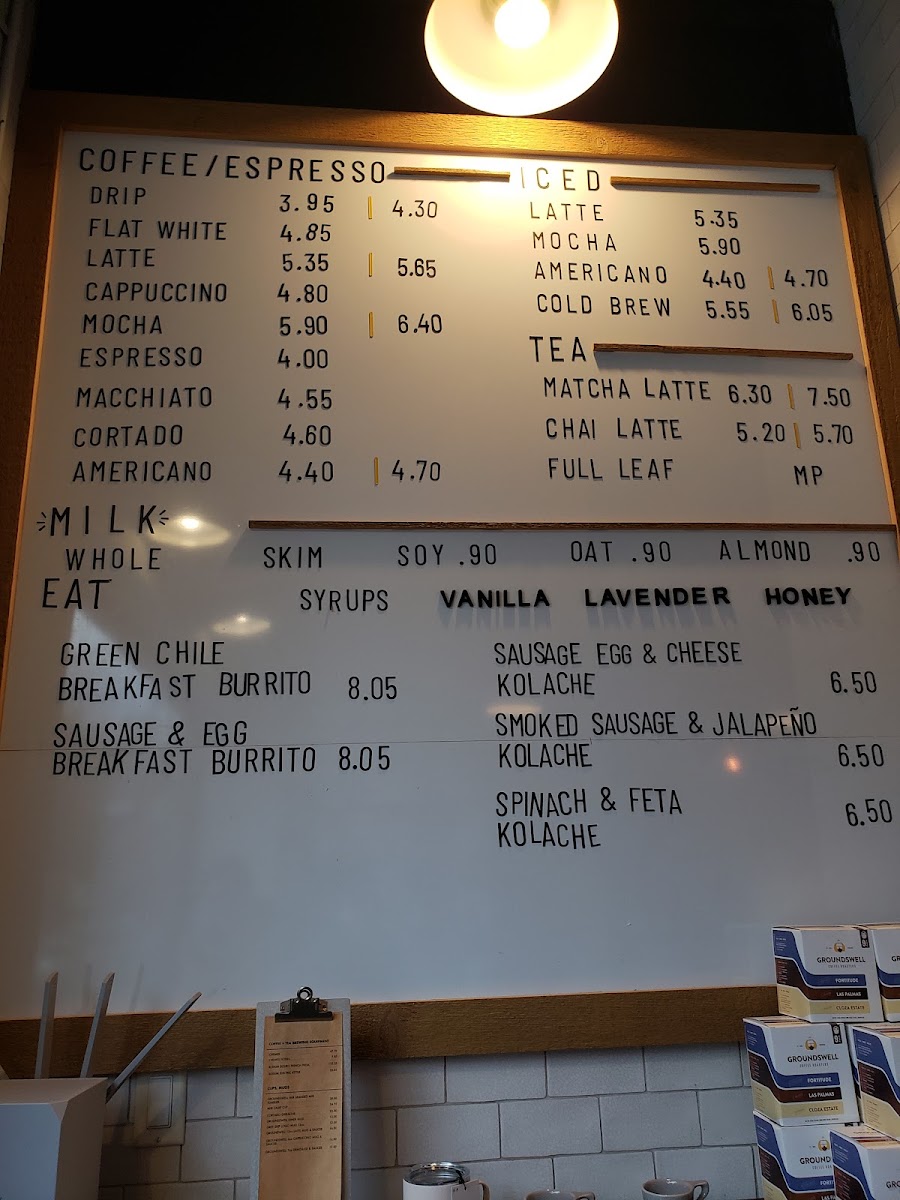 COFFEE/ESPRESSO
DRIP 3.95 | 4.30
FLAT WHITE 4.85
LATTE 5.35 | 5.65
CAPPUCCINO 4.80
MOCHA 5.90 | 6.40
ESPRESSO 4.00
MACCHIATO 4.55
CORTADO 4.60
AMERICANO 4.40 | 4.70
ICED
LATTE 5.35
MOCHA 5.90
AMERICANO 4.40 | 4.70
COLD BREW 5.55 | 6.05
TEA
MATCHA LATTE 6.30 | 7.50
CHAI LATTE 5.20 | 5.70
FULL LEAF MP
MILK
WHOLE SKIM SOY .90 OAT .90 ALMOND .90
EAT SYRUPS VANILLA LAVENDER HONEY
GREEN CHILE
BREAKFAST BURRITO 8.05
SAUSAGE & EGG
BREAKFAST BURRITO 8.05
SAUSAGE EGG & CHEESE
KOLACHE 6.50
SMOKED SAUSAGE & JALAPEÑO
KOLACHE 6.50
SPINACH & FETA
KOLACHE 6.50
GROUNDSWELL
FORTITUDE
LAS PALMAS
GROUNDSWELL
FORTITUDE
LAS PALMAS
GROUNDSWELL